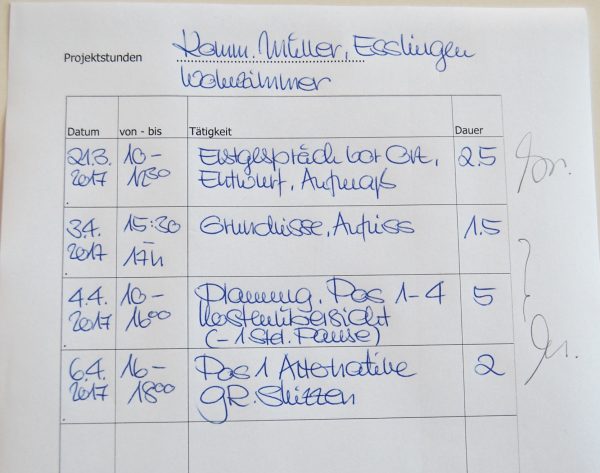 Projektstunden Komm. Müller, Esslingen
Wohnzimmer
Datum von - bis Tätigkeit Dauer
21.3. 10- Erstgespräch vor Ort, 2.5
2017 12³⁰ Entwurf, Aufmaß
3.4. 15:30 Grundrisse, Aufriss 1.5
2017 - 17h
4.4. 10- Planung. Pos 1-4 5
2017 16⁰⁰ Kostenübersicht
(-1 Std. Pause)
6.4. 16- Pos 1 Alternative 2
2017 18⁰⁰ GR. Skizzen